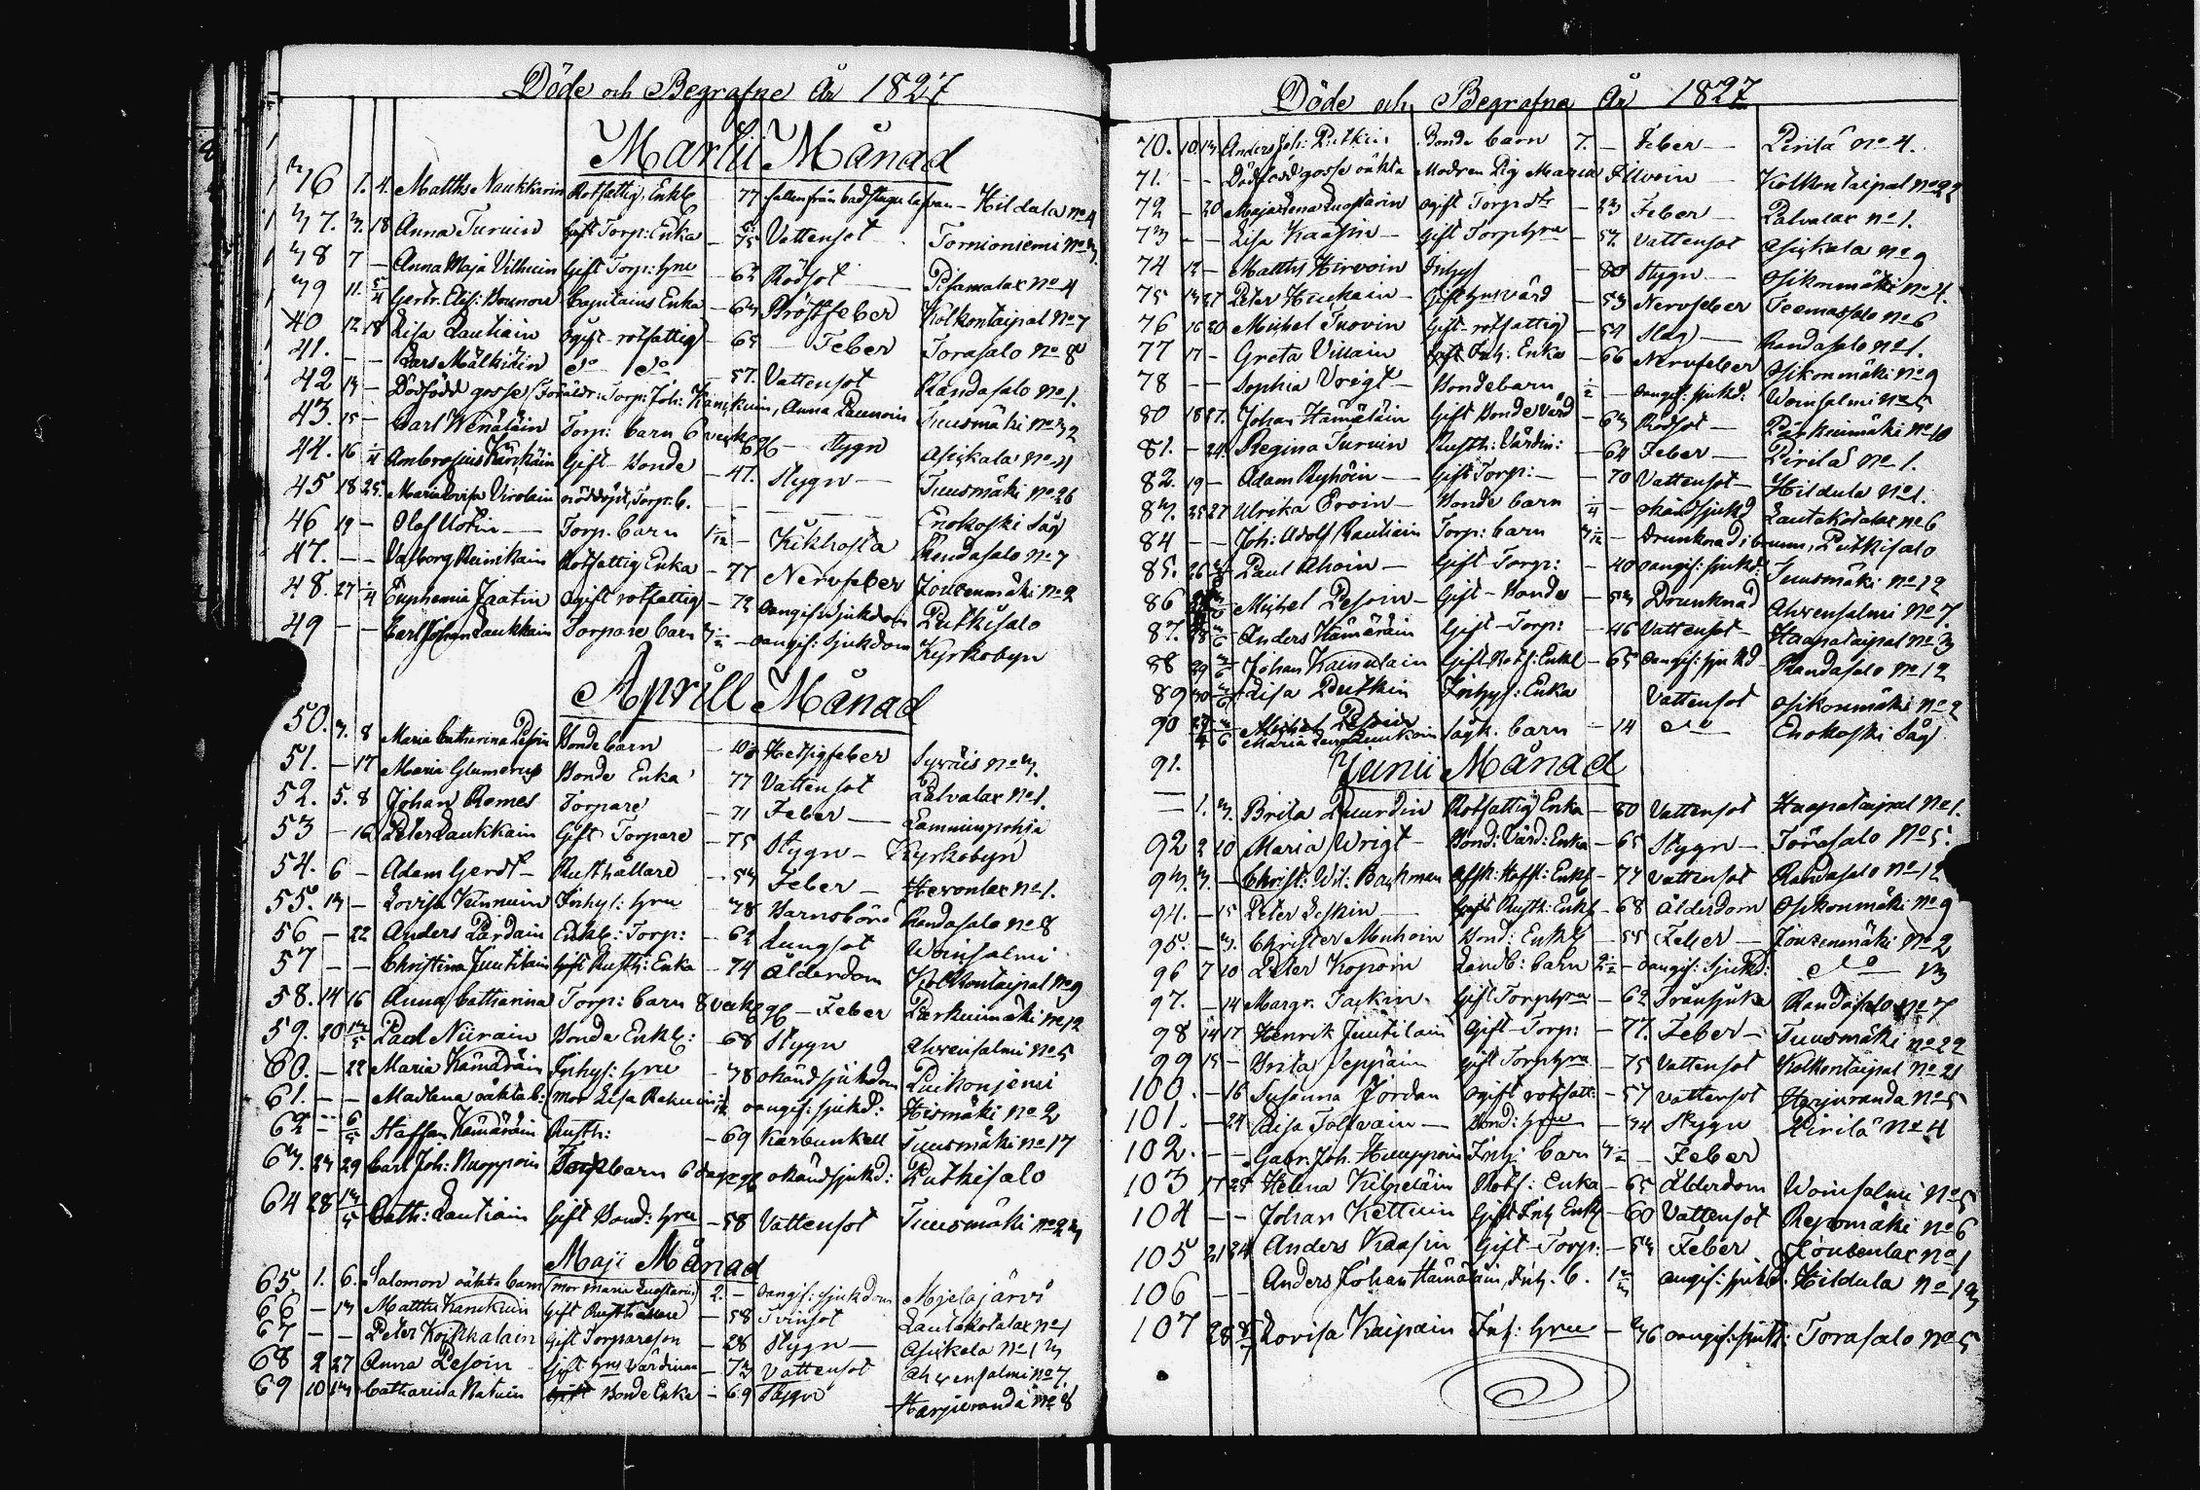 Döde och Begrafne År 1827
Martii Månad
36 1. 4. Matths Naukkarin Rotfattig Enkl 77 fallen från badstugu lafvan - Hildula No 4
37. 3. 18 Anna Turuin Gift Torp: Enka - 75 Vattensot Tornioniemi No 3
38 7 - Anna Maja Vilhuin Gift Torp: hru - 62 Rödsot - Pesamalax No 4
39 11. 5/4 Gertr. Elis: Capitains Enka - 63 Bröstfeber Kolkontaipal No 7
40 12 18 Lisa Lautiain ogift - rotfattig - 65 - Feber Torasalo No 8
41. - - Lars Mälkidin do do - 57. Vattensot Randasalo No 1.
42 13 - Dödfödd gosse, Föräldr: Torp: Joh: Anna Launoin Tuusmäki No 32
43. 15 - Carl Wenäläin Torp: barn 6 veck gl - Stygn Asickala No
44. 16 Ambrosius Kärckäin Gift - Bonde - 47. Stygn - Tuusmäki No 26
45 18 25. Maria Lovisa Virolain nöddöpt, Torp: b. - - - Enokoski Såg
46 19 - Olof - Torp. barn - Kikhosta Randasalo No 7
47. - - Valborg Rotfattig Enka - 77 Nervfeber Joutsenmäki No 2
48. 27 1/4 Euphemia Jaatin ogift rotfattig - 72 oangif: Sjukdom Putkisalo
49 - - Carl Johan Laukkain Torpare barn - oangif: Sjukdom Kyrkobyn
Aprill Månad
50. 3. 8 Maria Catharina Pesoin Bonde barn - 10 Hetsigfeber Syväis No 3.
51. - 17 Maria Glumerus Bonde Enka 77 Vattensot Palvalax No 1.
52. 5. 8 Johan Romes Torpare - 71 Feber - Lamminpohja
53 - 16 Peter Laukkain Gift Torpare - 75 Stygn - Kyrkobyn
54. 6 - Adam Gerdt - Rusthållare - 53 Feber - Hevonlax No 1.
55. 13 - Lovisa Kinnuin Inhys: hru - 38 Barnsbörd Randasalo No 8
56 - 22 Anders Pärdain Enkl: Torp: - 62 Lungsot Woinsalmi
57 - - Christina Juutilain Gift Rusth: Enka - 74 Ålderdom Kolkontaipal No 9
58. 14 16 Anna Catharina Torp: barn 8 veck gl - Feber Pärkuimäki No 12
59. 20 13/5 Paul Niirain Bonde Enkl: - 68 Stygn Ahvensalmi No 5
60. - 22 Maria Kämäräin Inhys: hru - 38 okänd sjukdom Puikonjemi
61. - - Madlena oäkta b: (mor Lisa oangif: sjukd: Hismäki No 2
62 - 6/5 Staffan Kämäräin Rusth: - 69 Karbunkel Tuusmäki No 17
63. 23 29 Carl Joh: Ruopoin Torp barn 6 dagr gl okänd sjukd: Putkisalo
64 28 13/5 Cath: Lautiain Gift Bond: hru - 58 Vattensot Tuusmäki No 23
Maji Månad
65. 1. 6. Salomon oäkta barn (mor Maria 2. - oangif: sjukdom Mjelajärvi
66 - 13 Matths Kanckuin Gift Rusthållare - 58 Tvinsot Lautakotalax No 1
67 - - Peter Koistkalain Gift Torpareson - 28 Stygn - Asickala No 13
68 2 27 Anna Pesoin Gift hus värdinna - 73 Vattensot Ahvensalmi No 7.
69 10 13 Catharina Natuin Bonde Enka - 69 Stygn Harjuranda No 8
Döde och Begrafne År 1827
70. 10 13 Anders Joh: Putkin Bonde barn 7. - Feber - Pirilä No 4.
71. - - Dödfödd gosse oäkta Modren Pig Maria Kolkontaipal No 22
72 - 20 Maja Lena ogift Torp dtr - 23 Feber - Palvalax No 1.
73 - - Lisa Kaasin - Gift Torp hru - 57. Vattensot Asickala No 9
74 12 - Matths Hirvoin Inhys - 80 Stygn - Osikonmäki No 4.
75 13 27 Peter Gift husvärd - 53 Nervfeber Teemassalo No 6
76 16 20 Michel Tuovin Gift - rotfattig - 54 Slag - Randasalo No 1.
77 17 - Greta Villain Inh: Enka - 66 Nervfeber Osikonmäki No 9
78 - - Sophia Vrigt - Bondebarn 1/2 - oangif: sjukd: Woinsalmi No 5
80 18 27. Johan Hämäläin Gift Bonde värd - 63 Rödsot - Pärkuimäki No 10
81. - 24. Regina Turuin Rusth: Värdin: - 64 Feber - Pirilä No 1.
82. 19 - Adam Ryhöin - Gift Torp: - - 70 Vattensot - Hildula No 1.
83. 25 27 Ulrika Eroin - Bonde barn 1/4 - okänd sjukd Lautakotalax No 6
84 - - Joh: Adolf Rautiain Torp: barn - Drunknad i brunn, Putkisalo
85. 26 Paul Ahoin - Gift - Torp: - 40 oangif: sjukd: Tuusmäki No 12
86 Michel Pesoin - Gift - Bonde - 53 Drunknad Ahvensalmi No 7.
87. Anders Hämäräin Gift - Torp: - 46 Vattensot - Haapataipal No 3
88 29 Johan Kainulain Gift Rotf: Enkl - 65 oangif: sjukd Randasalo No 12
89 30 Lisa Putkin Inhys: Enka Vattensot Osikonmäki No 2
90 Maria sågk. barn - 14 do Enokoski Såg
91. Junii Månad
- 1. 3. Brita Rotfattig Enka - 80 Vattensot Haapataipal No 1.
92 2 10 Maria Wrigt - Bond: Värd: Enka - 65 Stygn - Torasalo No 5.
93. 3. - Christ: Wil: Backman Afsk: Enkl - 77 Vattensot Randasalo No 12
94. - 15 Peter Leskin Rusth: Enkl - 68 Ålderdom Osikonmäki No 9
95. - 3. Christer Muhoin Bond: Enkl - 55 Feber - Joutsenmäki No 2
96 7 10 Peter Kopoin Landb: barn - oangif: sjukd: do 13
97. - 14 Margr. Taskin Gift Torp hru - 62 Trånsjuka Randasalo No 7
98 14 17 Henrik Juutilain Gift - Torp: - 77. Feber - Tuusmäki No 22
99 15 - Brita Seppäin Gift Torp hru - 75 Vattensot Kolkontaipal No 21
100. - 16 Susanna Jordan ogift rotfatt: - 57 Vattensot Harjuranda No 5
101. - 24 Caisa Tolvain - Bond: hru - 34 Stygn Pirilä No 4
102. - - Gabr. Joh. Inh: barn - Feber
103 17 25 Helena Kilpeläin Rotf: Enka - 65 Ålderdom Woinsalmi No 5
104 - - Johan Kettuin Gift Inh Enkl - 60 Vattensot Repomäki No 6
105 21 24 Anders Kaasin Gift - Torp: - 53 Feber Joutsenlax No 1
106 - - Anders Johan Hämäläin, Inh. b. oangif: sjukd: Hildula No 13
107 28 Lovisa Kaipain Inh: hru - 36 oangif: sjukd: Torasalo No 5